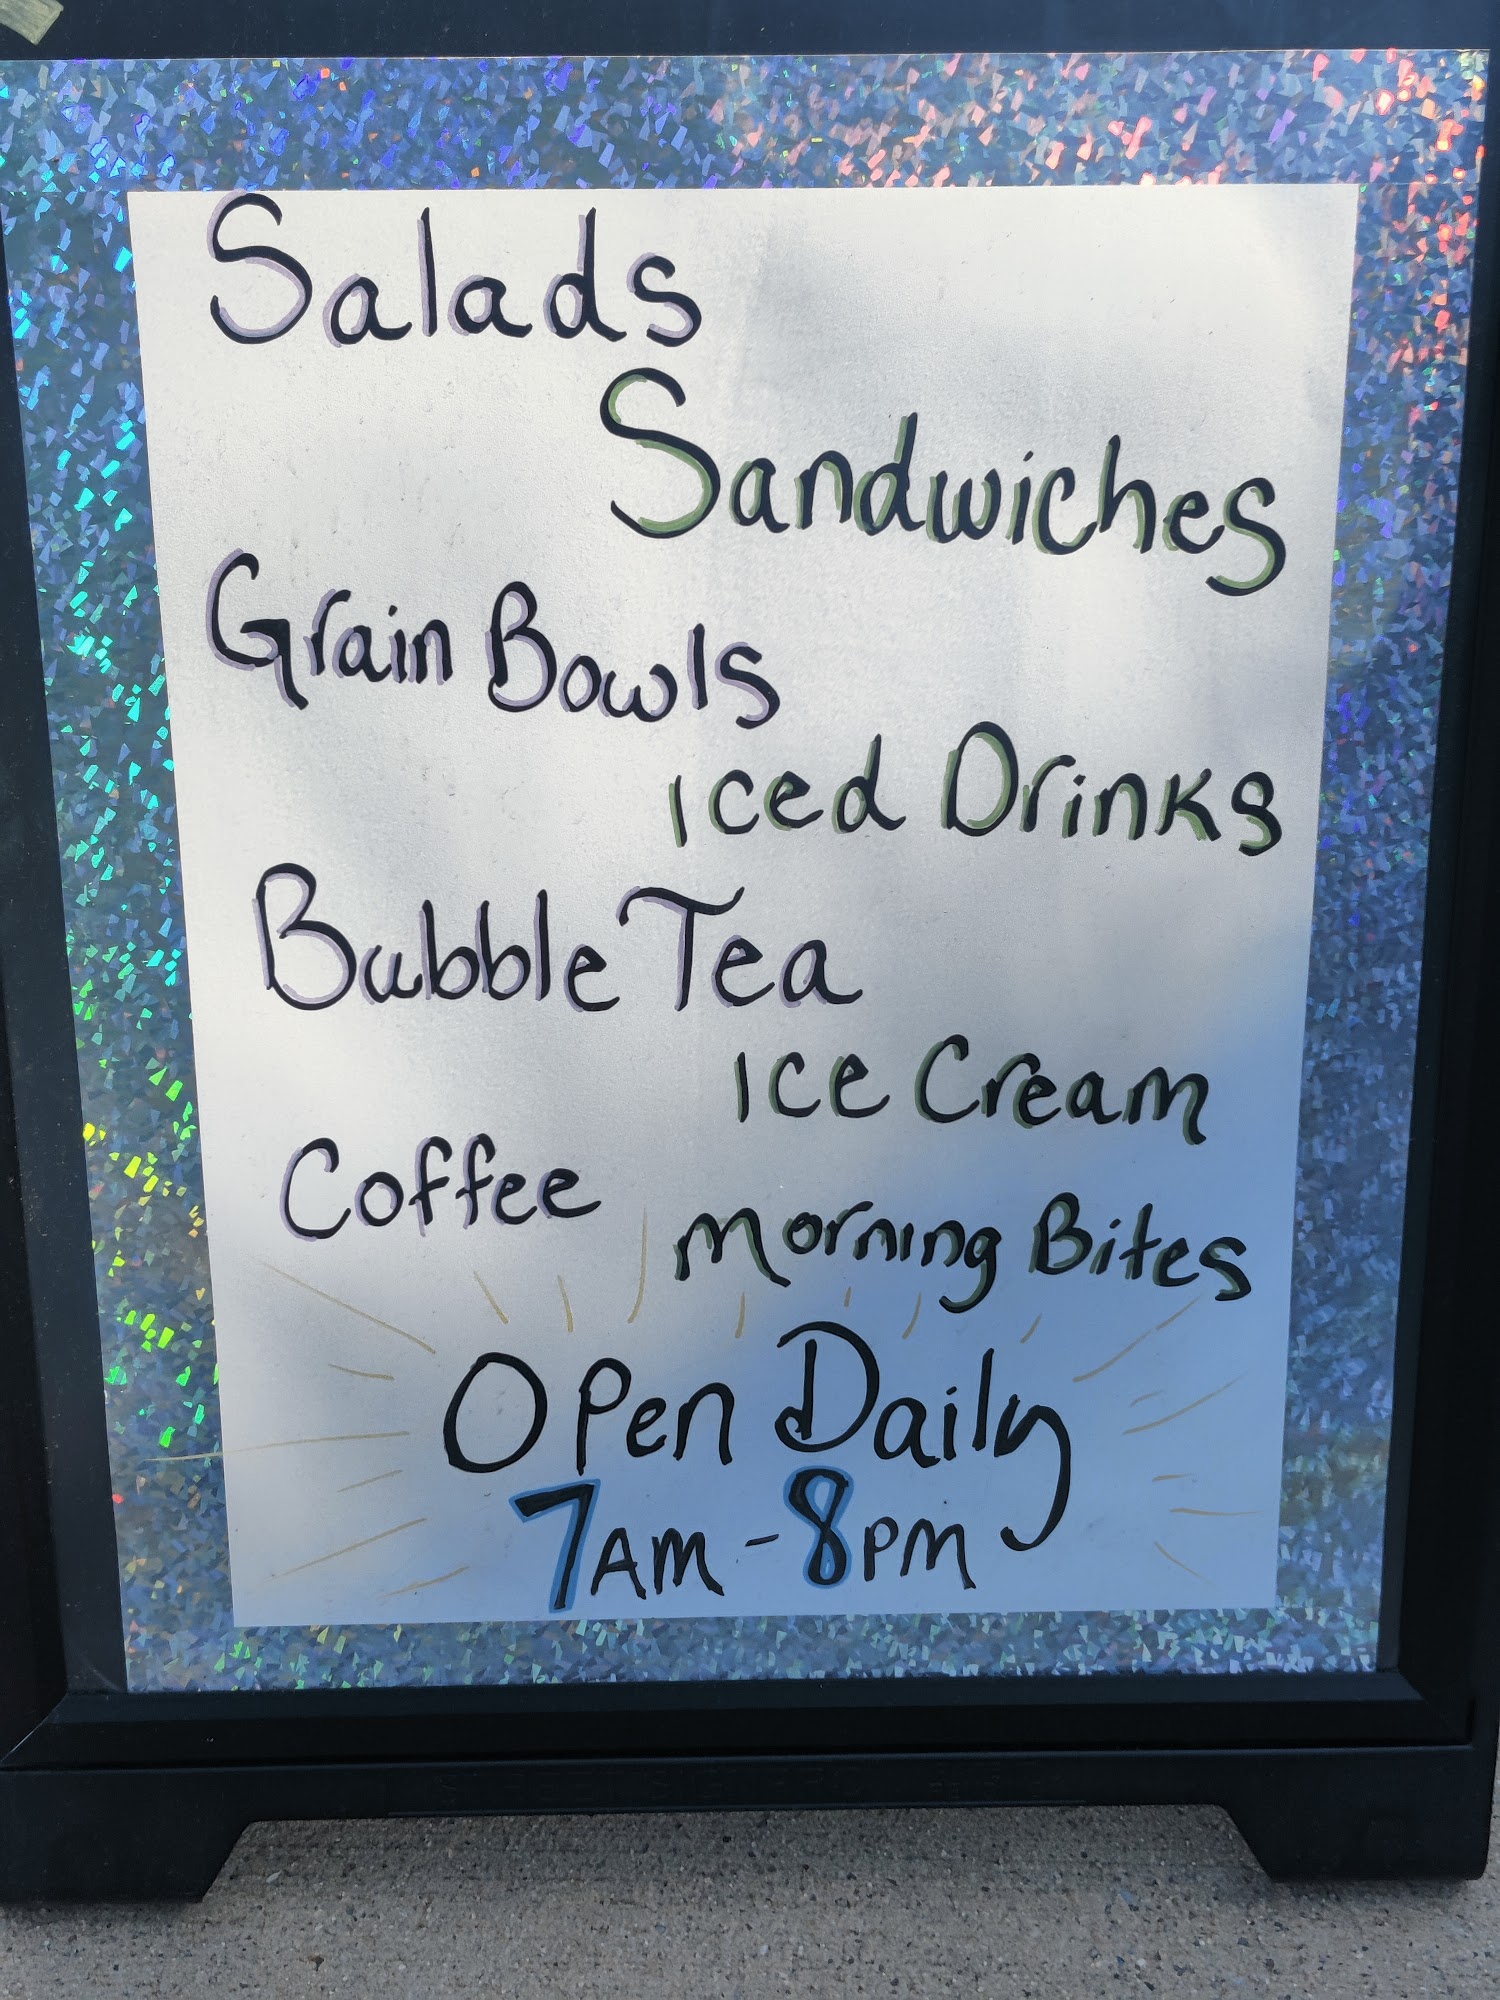 Salads
Sandwiches
Grain Bowls
Iced Drinks
Bubble Tea
Ice Cream
Coffee
Morning Bites
Open Daily
7AM - 8PM